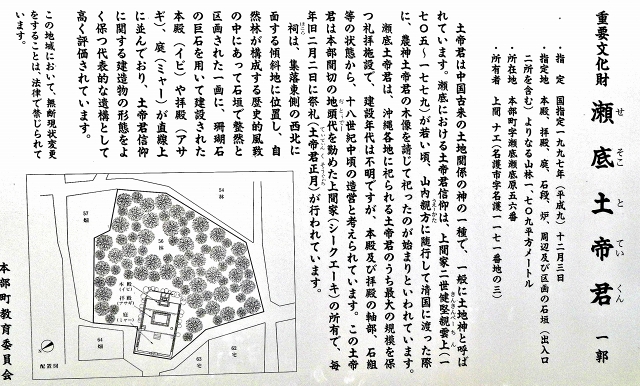 重要文化財 瀬底土帝君 一郭
せ そこ と てい くん
・指定 国指定一九九七年(平成九)十二月三日
・指定地 本殿、拝殿、庭、石段、炉、周辺及び区画の石垣(出入口
二ヶ所を含む)よりなる山林一、七〇九平方メートル
・所在地 本部町字瀬底瀬底原五六番
・所有者 上間 ナエ(名護市字名護一一七一番地の三)
土帝君は中国古来の土地関係の神の一種で、一般に土地神と呼ば
れています。瀬底における土帝君信仰は、上間家二世健堅親雲上(一
七〇五~一七七九)が若い頃、山内親方に随行して清国に渡った際
に、農神土帝君の木像を請じて祀ったのが始まりといわれています。
瀬底土帝君は、沖縄各地に祀られる土帝君のうち最大の規模を保
つ礼拝施設で、建設年代は不明ですが、本殿及び拝殿の軸部、石組
等の状態から、十八世紀中頃の造営と考えられています。この土帝
君は本部間切の地頭代を勤めた上間家(シークエーキ)の所有で、毎
年旧二月二日に祭礼(土帝君正月)が行われています。
祠は、集落東側の西北に
面する傾斜地に位置し、自
然林が構成する歴史的風致
の中にあって石垣で整然と
区画された一画に、珊瑚石
の巨石を用いて建設された
本殿(イビ)や拝殿(アサ
ギ)、庭(ミャー)が直線上
に並んでおり、土帝君信仰
に関する建造物の形態をよ
く保つ代表的な遺構として
高く評価されています。
この地域において、無断現状変更
をすることは、法律で禁じられて
います。
本部町教育委員会
54
林
57
畑
56
林
本殿
(イビ)
拝殿
(アサギ)
庭
(ミャー)
64
畑
63
宅
62
宅
配置図